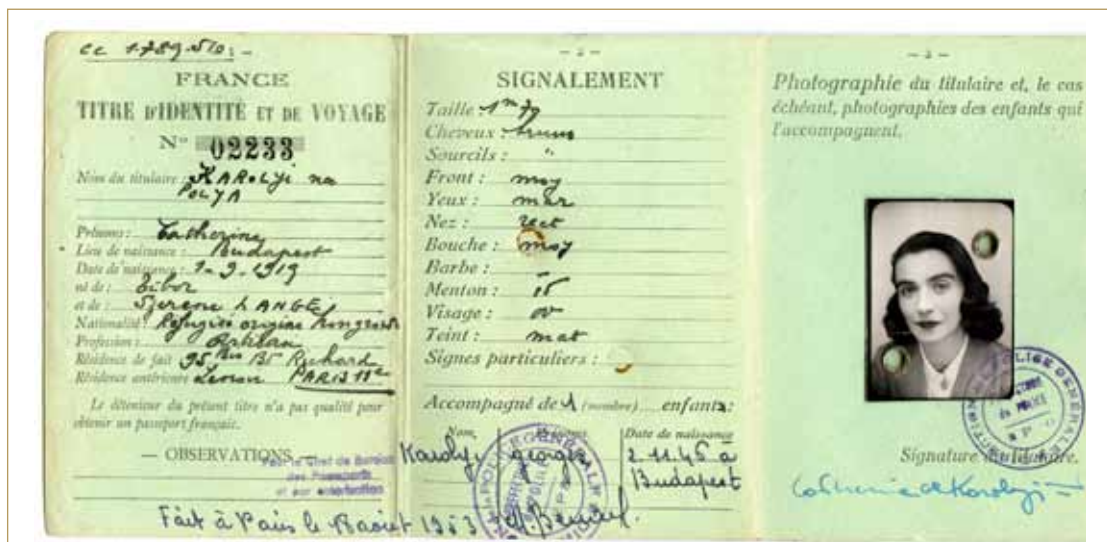 cc 1789510:-
FRANCE
TITRE D'IDENTITÉ ET DE VOYAGE
N° 02233
Nom du titulaire : KAROLYI na
POLYA
Prénoms : Catherine
Lieu de naissance : Budapest
Date de naissance : 1-9-1919
né de : Tibor
et de : LANGE
Nationalité : Réfugiée origine hongroise
Profession : Artisan
Résidence de fait : 95 bis Bt Richard
Résidence antérieure PARIS 11e
Le détenteur du présent titre n'a pas qualité pour
obtenir un passeport français.
— OBSERVATIONS —
Pour le Chef de Bureau
des Passeports
et par autorisation
Fait à Paris le 18 aout 1953
— 2 —
SIGNALEMENT
Taille : 1m
Cheveux : bruns
Sourcils : "
Front : moy
Yeux : mar
Nez : rect
Bouche : moy
Barbe : —
Menton :
Visage : ov
Teint : mat
Signes particuliers :
Accompagné de 1 (nombre) enfants :
Nom, Prénoms Date de naissance
Karolyi georges 2.11.46 à
Budapest
— 3 —
Photographie du titulaire et, le cas
échéant, photographies des enfants qui
l'accompagnent.
Signature du titulaire,
Catherine de Karolyi